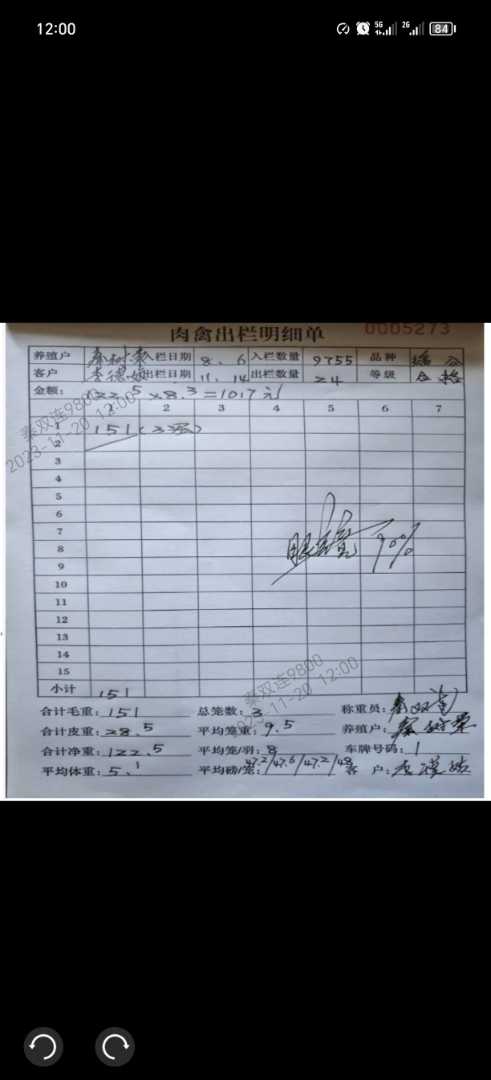 12:00
5G 2G 84
肉禽出栏明细单 0005273
养殖户 入栏日期 8.6 入栏数量 9755 品种
客户 李德 出栏日期 11.14 出栏数量 24 等级 合格
金额: 122.5×8.3=1017元
1 2 3 4 5 6 7
1 151(3笼)
2
3
4
5
6
7
8 眼 90%
9
10
11
12
13
14
15
小计 151
秦双连9800
2023-11-20 12:00
秦双连9800
2023-11-20 12:00
合计毛重: 151 总笼数: 3 称重员: 秦双连
合计皮重: 28.5 平均笼重: 9.5 养殖户:
合计净重: 122.5 平均笼/羽: 8 车牌号码: 1
平均体重: 5.1 平均磅/笼: 47.2/47.6/47.2/48 客户: